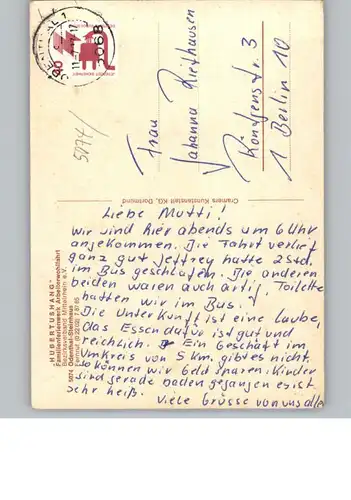 5068
JEDERZEIT SICHERHEIT
5074/
Frau
Johanna
Röntgenstr. 3
1 Berlin 10
Cramers Kunstanstalt KG, Dortmund
"HUBERTUSHANG"
Familienferienwerk Arbeiterwohlfahrt
Bezirksverband Mittelrhein e.V.
5074 Odenthal-Steinhaus
Liebe Mutti!
Wir sind hier abends um 6 Uhr
angekommen. Die Fahrt verlief
ganz gut Jeffrey hatte 2 Std.
im Bus geschlafen. Die anderen
beiden waren auch artig. Toilette
hatten wir im Bus.
Die Unterkunft ist eine Laube,
das Essen dafür ist gut und
reichlich. Ein Geschäft im
Umkreis von 5 Km. gibt es nicht.
So können wir Geld sparen. Kinder
sind gerade baden gegangen es ist
sehr heiß.
Viele Grüsse von uns allen